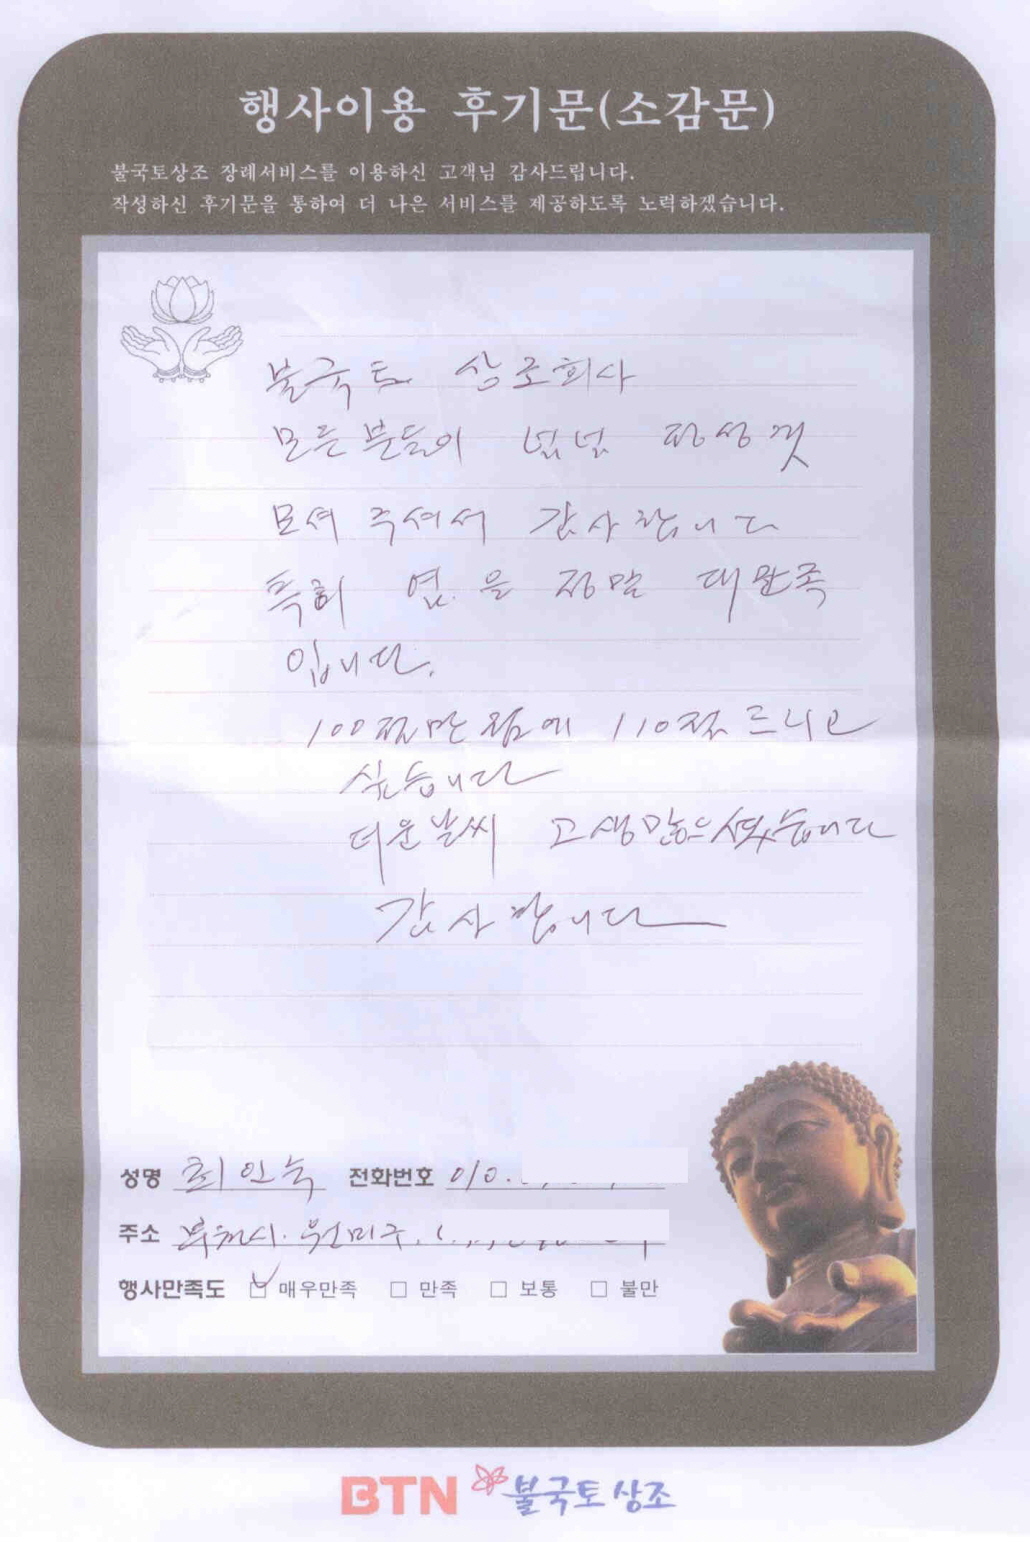 행사이용 후기문(소감문)
불국토상조 장례서비스를 이용하신 고객님 감사드립니다.
작성하신 후기문을 통하여 더 나은 서비스를 제공하도록 노력하겠습니다.
불국토 상조회사
모든분들이 정성것
모셔 주셔서 감사합니다
특히 염.을 정말 대만족
입니다.
100점만점에 110점 드리고
싶습니다
더운날씨 고생많으셨습니다
감사합니다
성명 최인숙 전화번호 010.
주소 부천시. 원미구.
행사만족도 매우만족 만족 보통 불만
BTN 불국토상조